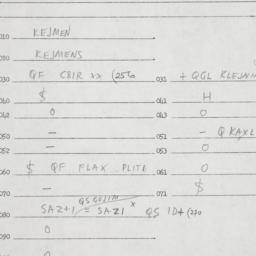 010 KEJMEN
020 KEJMENS
030 QF CBIR xx (25% 031 + QGL KLEJM
$
040 041 H
042 0 043 0
050 — 051 — Q KAXL
052 — 053 0
060 $ QF FLAX PLITE 061 0
070 — 071 $
QS GUJIM x
080 SAZ+1 = SAZ1 QS ID+ (220
090 0